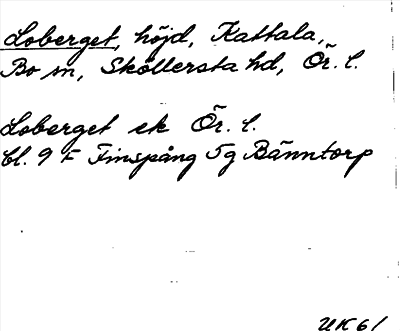 Loberget, höjd, Kattala,
Bo sn, Sköllersta hd, Ör. l.
Loberget ek Ör. l.
bl. 9 F Finspång 5g Bänntorp
UK 61